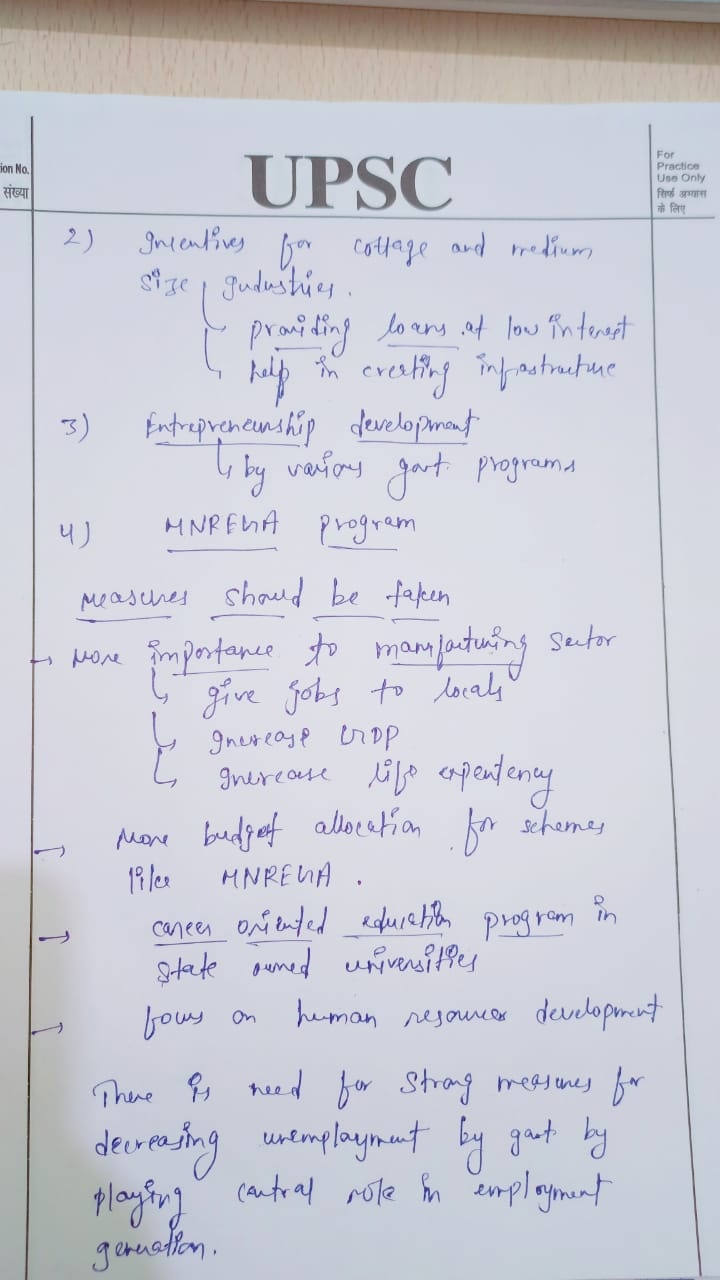 ion No.
संख्या
UPSC
For
Practice
Use Only
सिर्फ अभ्यास
के लिए
2) Incentives for cottage and medium
size Industries.
providing loans at low interest
help in creating infrastructure
3) Entrepreneurship development
by various govt. programs
4) MNREGA program
Measures should be taken
→ More importance to manufacturing Sector
give jobs to locals
Increase GDP
Increase life expentency
→ More budget allocation for schemes
like MNREGA.
→ career oriented education program in
state owned universities
→ focus on human resources development
There is need for Strong measures for
decreasing unemployment by govt by
playing central role in employment
genration.